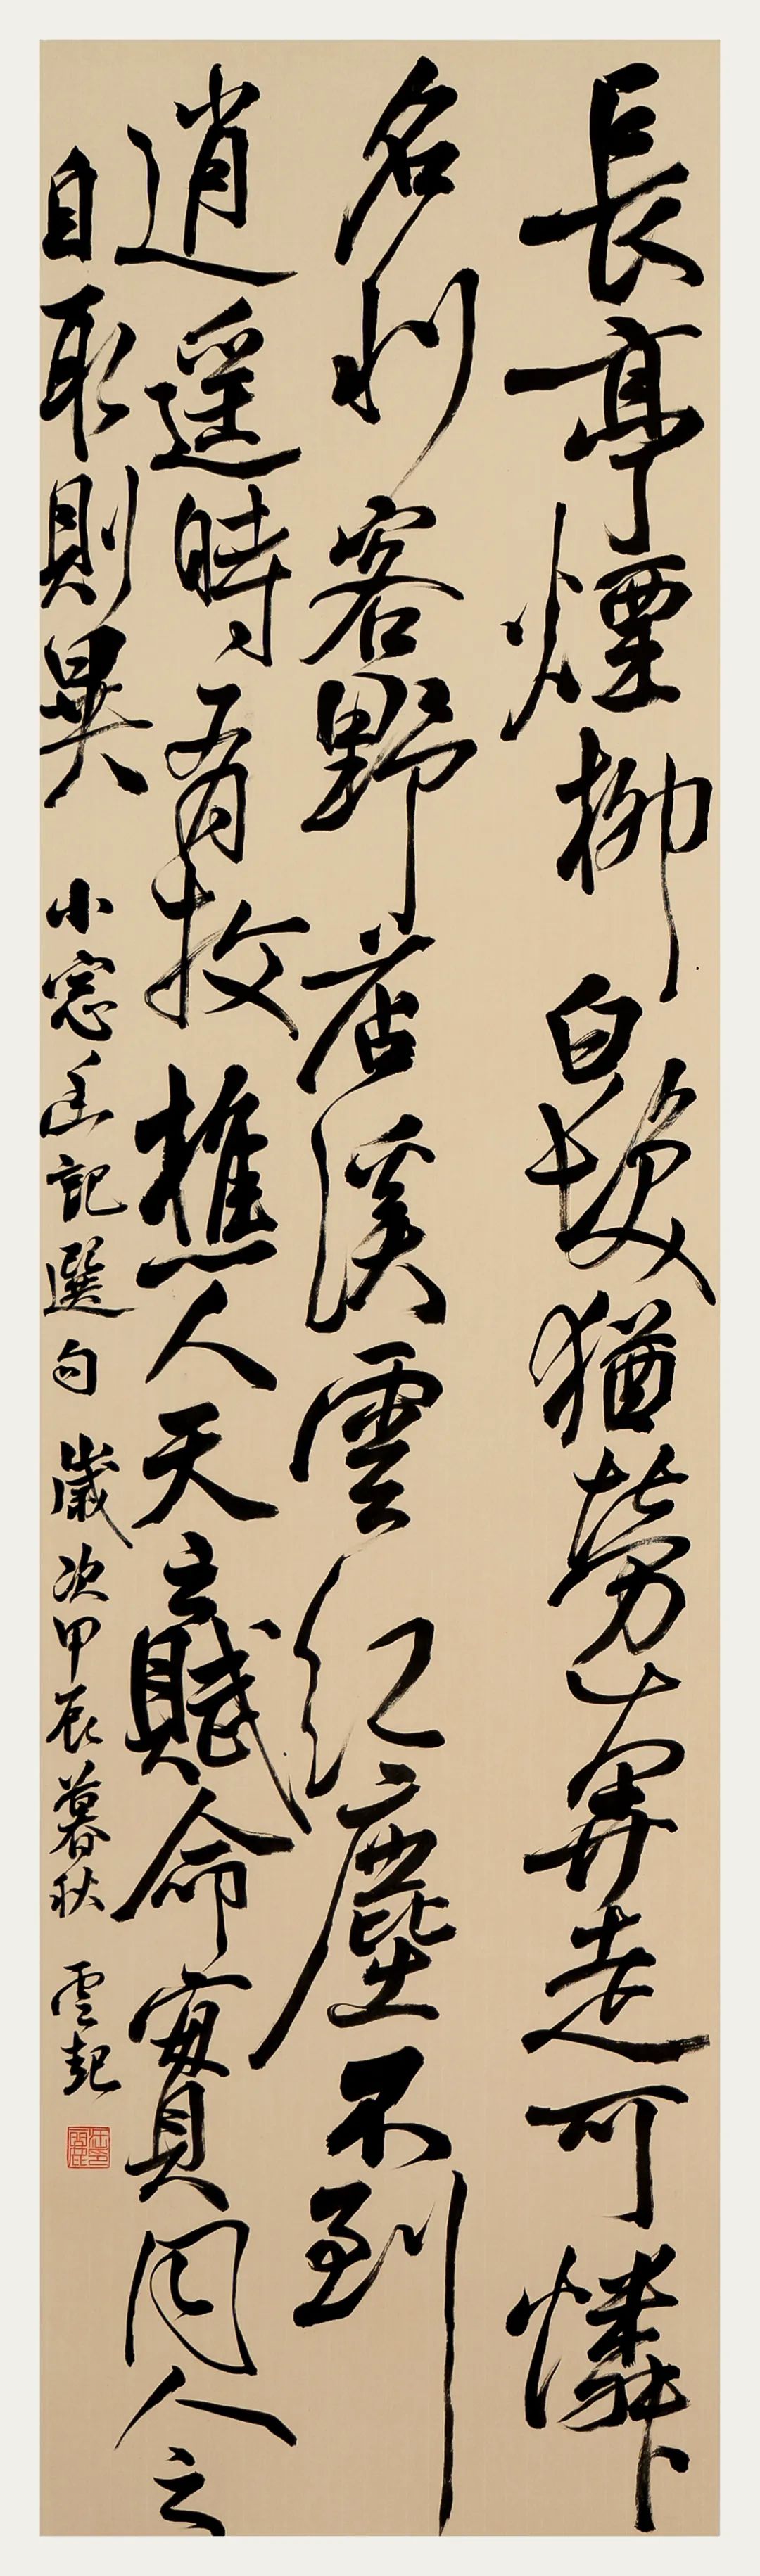 長亭煙柳白髮猶勞奔走可憐
名利客野店溪雲紅塵不到
逍遥時有牧樵人天之賦命實同人之
自取則異 小窓幽記選句 歲次甲辰暮秋 雲起